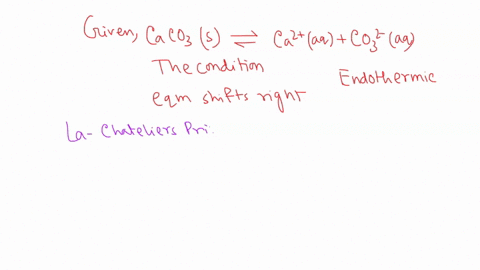 Given, CaCO₃ (s) ⇌ Ca²⁺ (aq) + CO₃²⁻ (aq)
The condition
Endothermic
eqm shifts right
La- Chateliers Pri